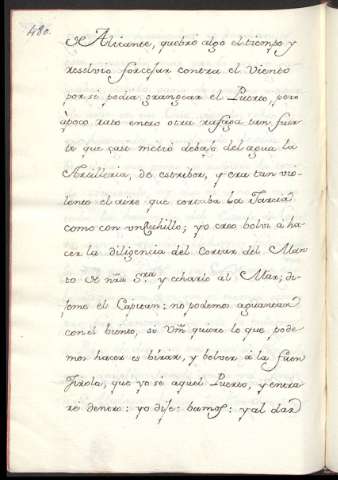 480.
de Alicante, quebró algo el tiempo y
resolvio forcejar contra el Viento
por si podia grangear el Puerto, pero
àpoco rato entro otra rafaga tan fuer
te que casi metiò debajo del agua la
Artilleria, de estribor, y era tan vio
lento el aire que cortaba la Jarcia
como con vn Cuchillo; yo creo bolvi á ha
cer la diligencia del Cortar del Man
to de nrã Srã y echarlo al Mar; di
jome el Capitan: no podemos aguantar
con el biento, si Vm̃ quiere lo que pode
mos hacer es birar, y bolver á la fuen
Jirola, que yo sé aquel Puerto, y entra
ré dentro: yo dije: bamos: y al dar